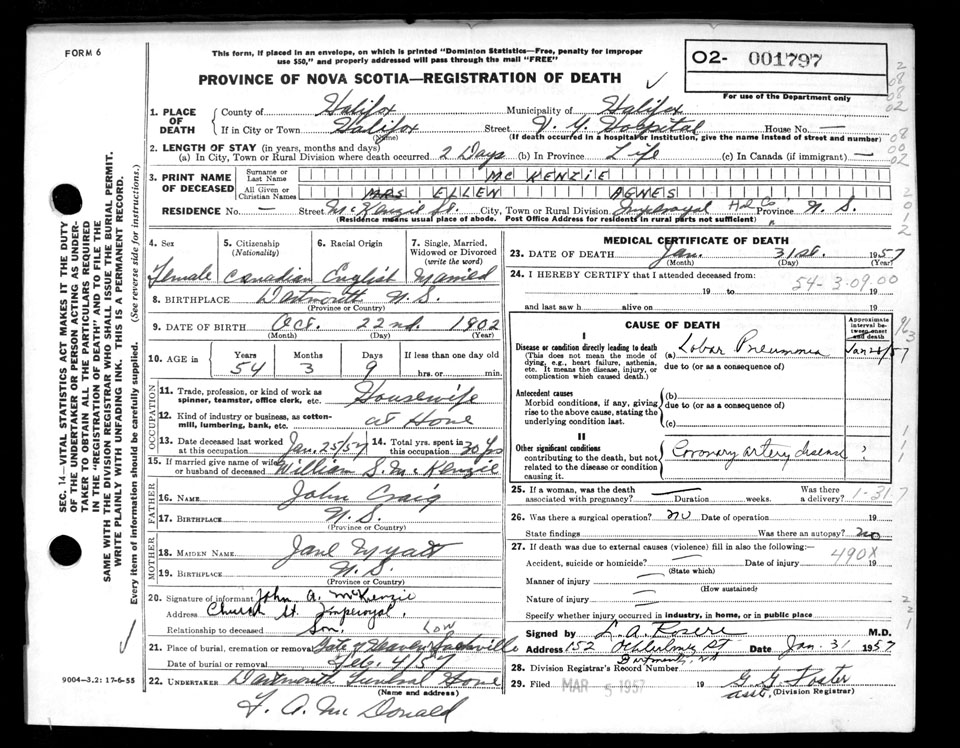 FORM 6
This form, if placed in an envelope, on which is printed "Dominion Statistics—Free, penalty for improper
use $50," and properly addressed will pass through the mail "FREE"
PROVINCE OF NOVA SCOTIA—REGISTRATION OF DEATH
02- 001797
For use of the Department only
1. PLACE OF DEATH
County of Halifax Municipality of Halifax
If in City or Town Halifax Street V. G. Hospital House No. —
(If death occurred in a hospital or institution, give the name instead of street and number)
2. LENGTH OF STAY (in years, months and days)
(a) In City, Town or Rural Division where death occurred 2 Days (b) In Province Life (c) In Canada (if immigrant) —
3. PRINT NAME OF DECEASED
Surname or Last Name MC KENZIE
All Given or Christian Names MRS ELLEN AGNES
RESIDENCE No. — Street McKenzie St. City, Town or Rural Division Imperoyal Hal. Co. Province N. S.
(Residence means usual place of abode. Post Office Address for residents in rural parts not sufficient)
4. Sex
Female
5. Citizenship (Nationality)
Canadian
6. Racial Origin
English
7. Single, Married, Widowed or Divorced (write the word)
Married
8. BIRTHPLACE Dartmouth N. S.
(Province or Country)
9. DATE OF BIRTH Oct. 22nd. 1902
(Month) (Day) (Year)
10. AGE in Years Months Days If less than one day old
54 3 9 hrs. or min.
OCCUPATION
11. Trade, profession or kind of work as
spinner, teamster, office clerk, etc. Housewife
12. Kind of industry or business, as cotton-
mill, lumbering, bank, etc. at Home
13. Date deceased last worked at this occupation Jan. 25/57
14. Total yrs. spent in this occupation 30 yrs
15. If married give name of wife
or husband of deceased William S. McKenzie
FATHER
16. NAME John Craig
17. BIRTHPLACE N. S.
(Province or Country)
MOTHER
18. MAIDEN NAME Jane Myatt
19. BIRTHPLACE N. S.
(Province or Country)
20. Signature of informant John A. McKenzie
Address Church St. Imperoyal
Relationship to deceased Son.
21. Place of burial, cremation or removal Gate of Heaven Sackville
Low
Date of burial or removal Feb. 4/57
22. UNDERTAKER Dartmouth Funeral Home
(Name and address)
F. A. McDonald
9004—3.2: 17-6-55
MEDICAL CERTIFICATE OF DEATH
23. DATE OF DEATH Jan. 31st. 1957
(Month) (Day) (Year)
24. I HEREBY CERTIFY that I attended deceased from:
19 to 19
54-3-09.00
and last saw h alive on 19
CAUSE OF DEATH
Approximate interval between onset and death
I
Disease or condition directly leading to death
(This does not mean the mode of
dying, e.g., heart failure, asthenia,
etc. It means the disease, injury, or
complication which caused death.)
(a) Lobar Pneumonia
due to (or as a consequence of)
Antecedent causes
Morbid conditions, if any, giving
rise to the above cause, stating the
underlying condition last.
(b)
due to (or as a consequence of)
(c)
II
Other significant conditions
contributing to the death, but not
related to the disease or condition
causing it.
Coronary artery disease ?
25. If a woman, was the death associated with pregnancy? — Duration weeks. Was there a delivery?
1-31 7
26. Was there a surgical operation? no Date of operation 19
State findings Was there an autopsy? no
27. If death was due to external causes (violence) fill in also the following:—
490X
Accident, suicide or homicide? — Date of injury 19
(State which)
Manner of injury —
(How sustained)
Nature of injury —
Specify whether injury occurred in industry, in home, or in public place
Signed by M.D.
Address 152 Dartmouth, N.S. Date Jan. 31 1957
28. Division Registrar's Record Number
29. Filed MAR 5 1957 G. G. Foster
asst. (Division Registrar)
SEC. 14—VITAL STATISTICS ACT MAKES IT THE DUTY
OF THE UNDERTAKER OR PERSON ACTING AS UNDER-
TAKER TO OBTAIN ALL THE PARTICULARS REQUIRED
IN THE "REGISTRATION OF DEATH" AND TO FILE THE
SAME WITH THE DIVISION REGISTRAR WHO SHALL ISSUE THE BURIAL PERMIT.
WRITE PLAINLY WITH UNFADING INK. THIS IS A PERMANENT RECORD.
Every item of information should be carefully supplied. (See reverse side for instructions.)